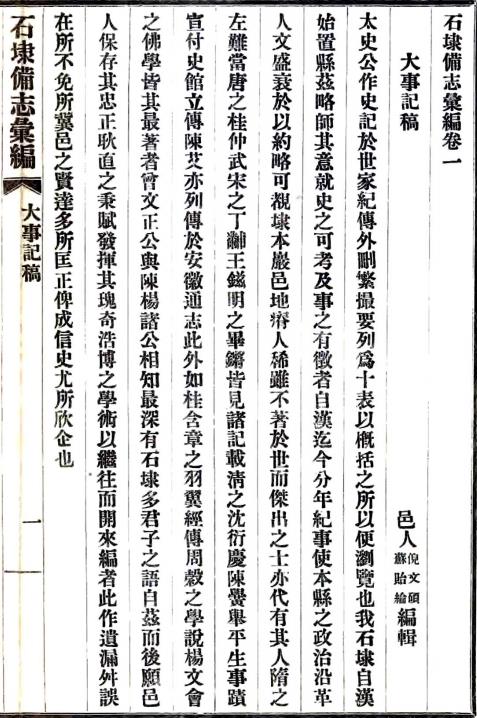 石埭備志彙編卷一
大事記稿
邑人倪文碩蘇貽綸編輯
太史公作史記於世家紀傳外刪繁撮要列爲十表以概括之所以便瀏覽也我石埭自漢
始置縣茲略師其意就史之可考及事之有徵者自漢迄今分年紀事使本縣之政治沿革
人文盛衰於以約略可覩埭本巖邑地瘠人稀雖不著於世而傑出之士亦代有其人隋之
左難當唐之桂仲武宋之丁黼王鎡明之畢鏘皆見諸記載清之沈衍慶陳黌舉平生事蹟
宣付史館立傳陳艾亦列傳於安徽通志此外如桂含章之羽翼經傳周縠之學說楊文會
之佛學皆其最著者曾文正公與陳楊諸公相知最深有石埭多君子之語自茲而後願邑
人保存其忠正耿直之秉賦發揮其瑰奇浩博之學術以繼往而開來編者此作遺漏舛誤
在所不免所冀邑之賢達多所匡正俾成信史尤所欣企也
石埭備志彙編
大事記稿
一